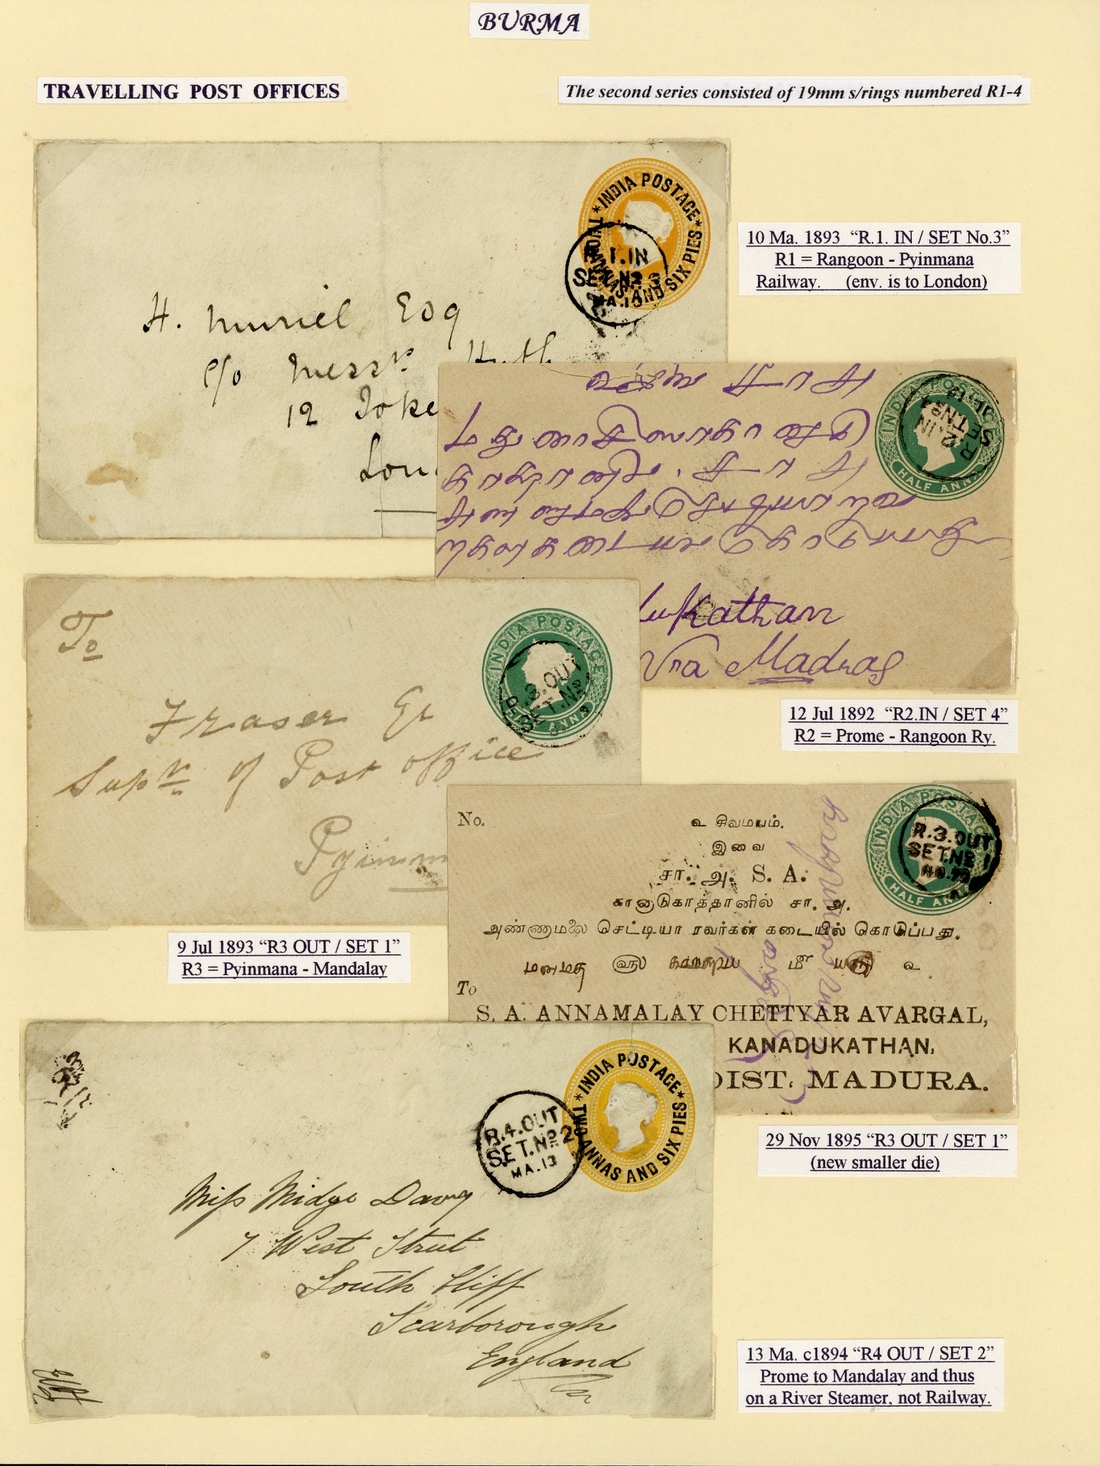 BURMA
TRAVELLING POST OFFICES
The second series consisted of 19mm s/rings numbered R1-4
INDIA POSTAGE
TWO ANNAS AND SIX PIES
1.IN
SET No 3
MA.10
H. Muriel Esq
c/o Messrs
12 Toke
Lon
10 Ma. 1893 “R.1. IN / SET No.3”
R1 = Rangoon - Pyinmana
Railway. (env. is to London)
INDIA POSTAGE
HALF ANNA
R 2 IN
SET No 4
JL 12
ukathan
Via Madras
12 Jul 1892 “R2.IN / SET 4”
R2 = Prome - Rangoon Ry.
To
INDIA POSTAGE
3.OUT
SET.No
Fraser Er
Supr. of Post office
Pyinm
9 Jul 1893 “R3 OUT / SET 1”
R3 = Pyinmana - Mandalay
No.
INDIA POSTAGE
HALF ANNA
R.3.OUT
SET.No 1
உ சிவமயம்.
இவை
சா. அ. S. A.
கானாடுகாத்தானில் சா. அ.
அண்ணாமலை செட்டியா ரவர்கள் கடையில் கொடுப்பது.
To
S. A. ANNAMALAY CHETTYAR AVARGAL,
KANADUKATHAN,
DIST. MADURA.
29 Nov 1895 “R3 OUT / SET 1”
(new smaller die)
INDIA POSTAGE
TWO ANNAS AND SIX PIES
R.4.OUT
SET.No 2
MA.13
Miss Midge Davy
7 West Street
South Cliff
Scarborough
England
13 Ma. c1894 “R4 OUT / SET 2”
Prome to Mandalay and thus
on a River Steamer, not Railway.